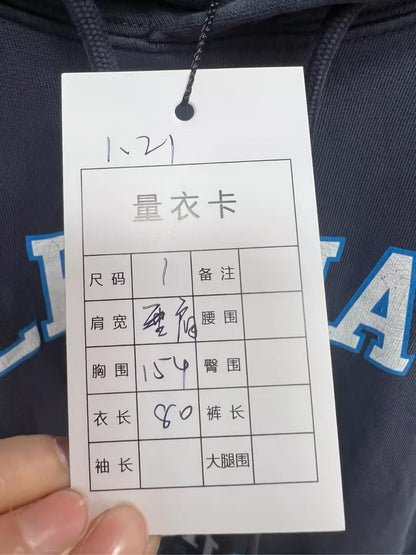 1.21
量衣卡
尺码 1 备注
肩宽 垂肩 腰围
胸围 154 臀围
衣长 80 裤长
袖长 大腿围